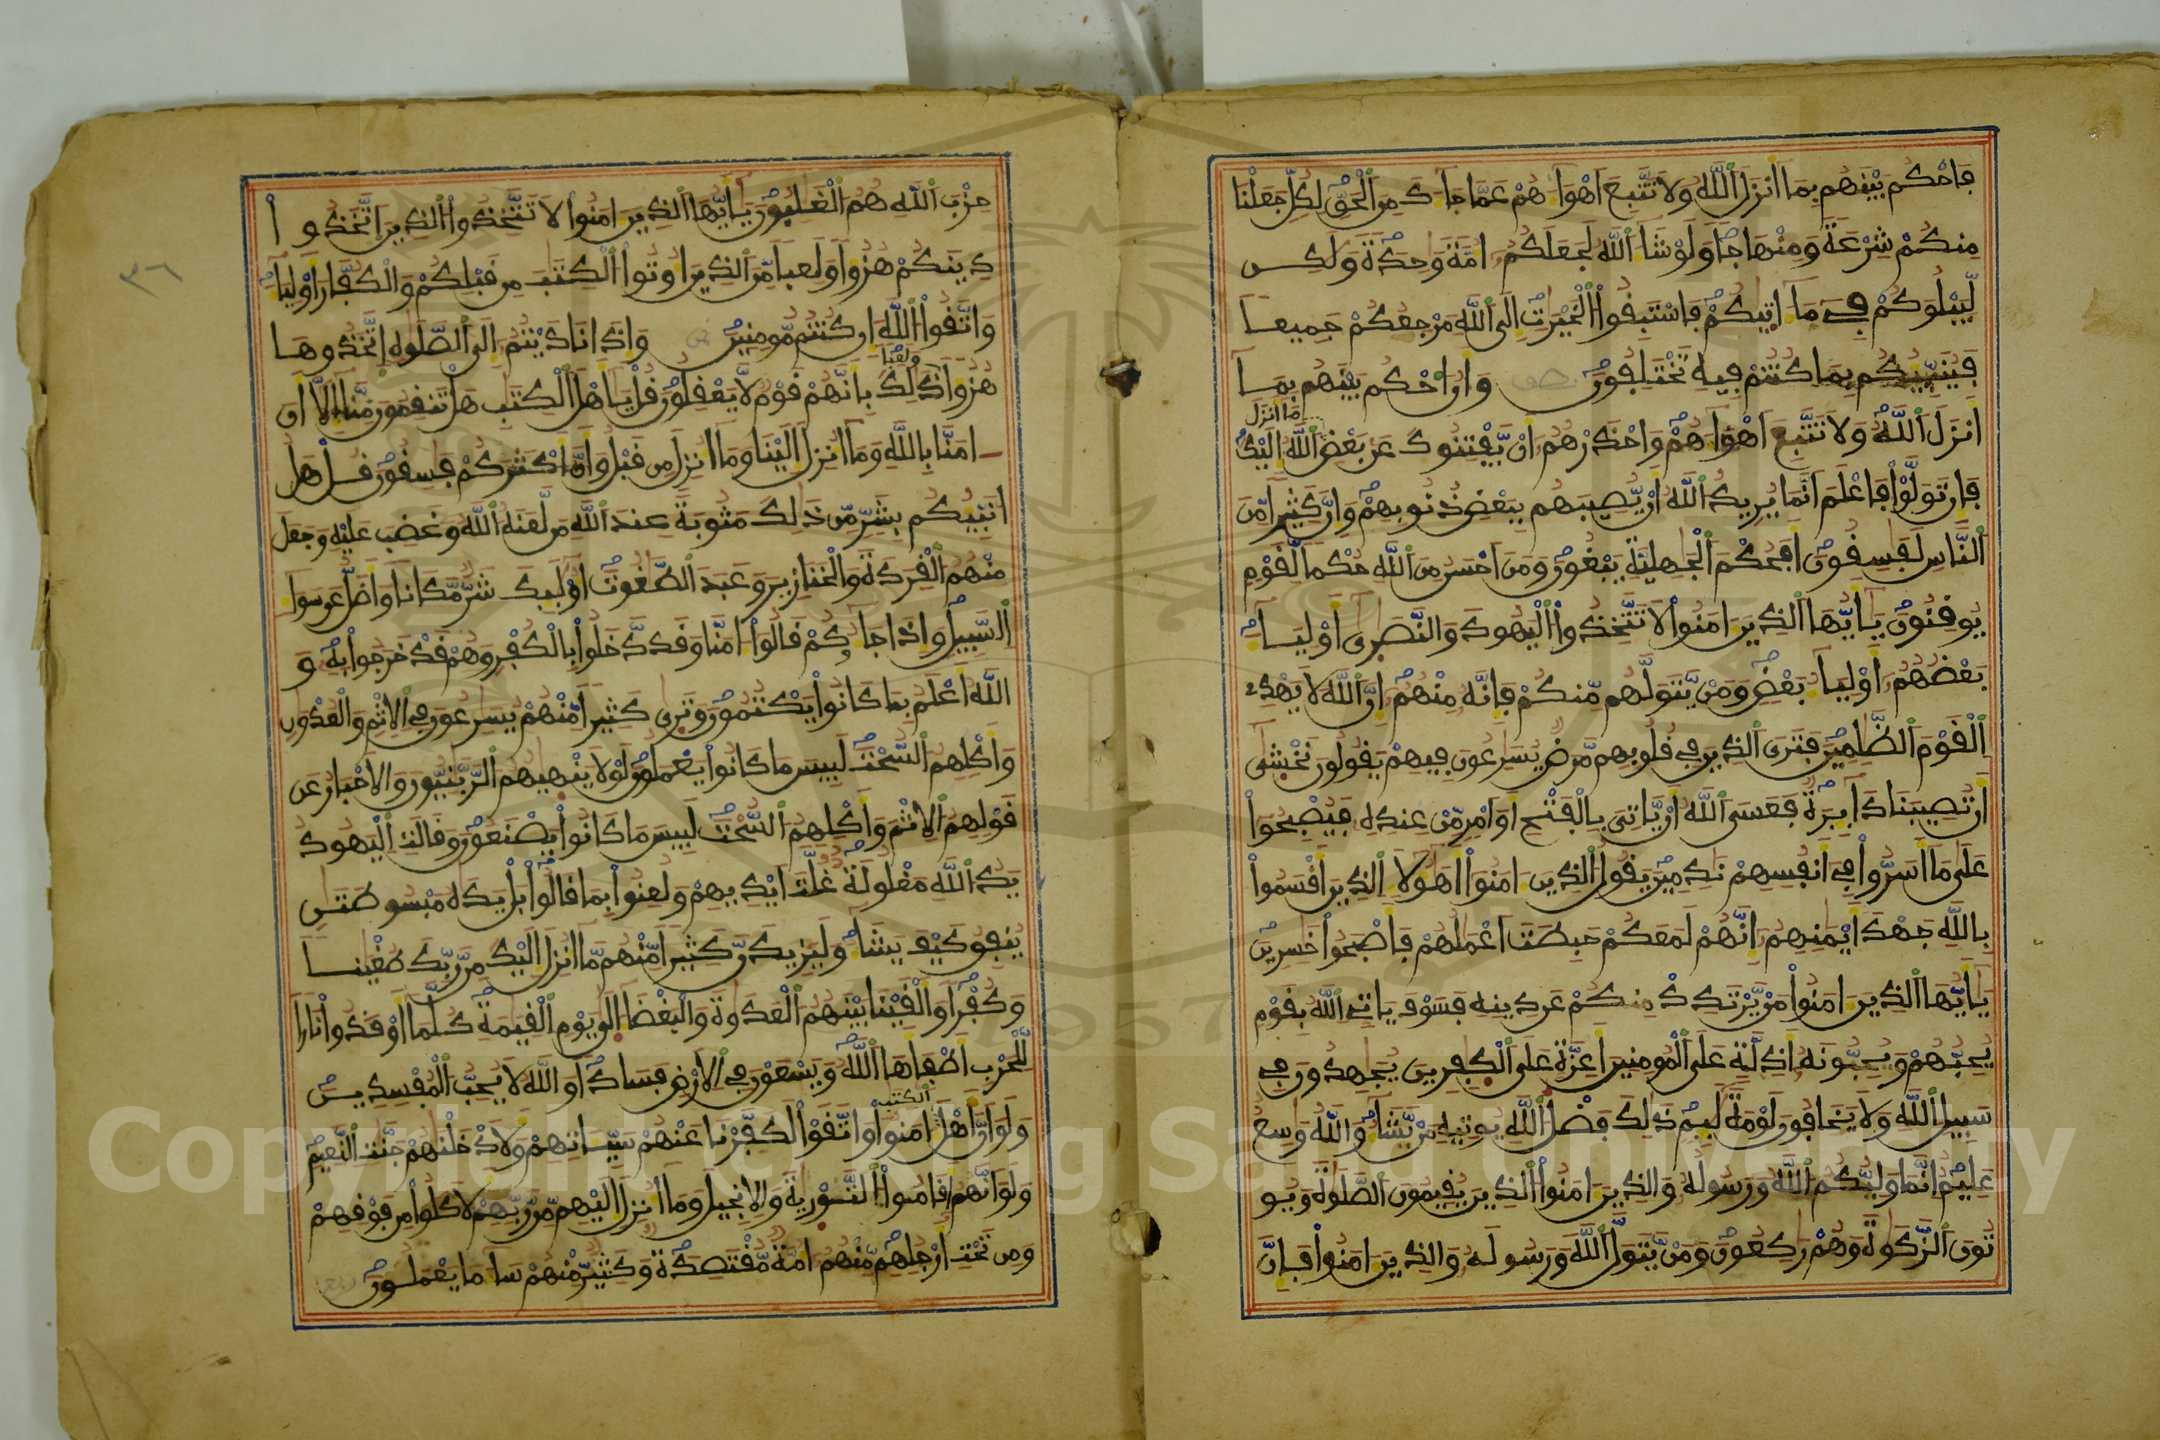 فاحكم بينهم بما انزل الله ولا تتبع اهوا هم عما جا ك من الحق لكل جعلنا
منكم شرعة ومنهاجا ولو شا الله لجعلكم امة وحدة ولكن
ليبلوكم في ما اتيكم فاستبقوا الخيرت الى الله مرجعكم جميعا
فينبيكم بما كنتم فيه تختلفون وان احكم بينهم بما
انزل الله ولا تتبع اهوا هم واحذرهم ان يفتنوك عن بعض ما انزل الله اليك
فان تولوا فاعلم انما يريد الله ان يصيبهم ببعض ذنوبهم وان كثيرا من
الناس لفسقون افحكم الجهلية يبغون ومن احسن من الله حكما لقوم
يوقنون يايها الذين امنوا لا تتخذوا اليهود والنصرى اوليا
بعضهم اوليا بعض ومن يتولهم منكم فانه منهم ان الله لا يهدي
القوم الظلمين فترى الذين في قلوبهم مرض يسرعون فيهم يقولون نخشى
ان تصيبنا دايرة فعسى الله ان ياتي بالفتح او امر من عنده فيصبحوا
على ما اسروا في انفسهم ندمين يقول الذين امنوا اهولا الذين اقسموا
بالله جهد ايمنهم انهم لمعكم حبطت اعملهم فاصبحوا خسرين
يايها الذين امنوا من يرتدد منكم عن دينه فسوف ياتي الله بقوم
يحبهم ويحبونه اذلة على المومنين اعزة على الكفرين يجهدون في
سبيل الله ولا يخافون لومة لايم ذلك فضل الله يوتيه من يشا والله وسع
عليم انما وليكم الله ورسوله والذين امنوا الذين يقيمون الصلوة ويو
تون الزكوة وهم ركعون ومن يتول الله ورسوله والذين امنوا فان
حزب الله هم الغلبون يايها الذين امنوا لا تتخذوا الذين اتخذوا
دينكم هزوا ولعبا من الذين اوتوا الكتب من قبلكم والكفار اوليا
واتقوا الله ان كنتم مومنين واذا ناديتم الى الصلوة اتخذوها
هزوا ولعبا ذلك بانهم قوم لا يعقلون قل ياهل الكتب هل تنقمون منا الا ان
امنا بالله وما انزل الينا وما انزل من قبل وان اكثركم فسقون قل هل
انبيكم بشر من ذلك مثوبة عند الله من لعنه الله وغضب عليه وجعل
منهم القردة والخنازير وعبد الطغوت اوليك شر مكانا واضل عن سوا
السبيل واذا جا وكم قالوا امنا وقد دخلوا بالكفر وهم قد خرجوا به و
الله اعلم بما كانوا يكتمون وترى كثيرا منهم يسرعون في الاثم والعدون
واكلهم السحت لبيس ما كانوا يعملون لولا ينهيهم الربنيون والاحبار عن
قولهم الاثم واكلهم السحت لبيس ما كانوا يصنعون وقالت اليهود
يد الله مغلولة غلت ايديهم ولعنوا بما قالوا بل يده مبسوطتن
ينفق كيف يشا وليزيدن كثيرا منهم ما انزل اليك من ربك طغينا
وكفرا والقينا بينهم العدوة والبغضا الى يوم القيمة كلما اوقدوا نارا
للحرب اطفاها الله ويسعون في الارض فسادا والله لا يحب المفسدين
ولو ان اهل الكتب امنوا واتقوا لكفرنا عنهم سياتهم ولادخلنهم جنت النعيم
ولو انهم اقاموا التورية والانجيل وما انزل اليهم من ربهم لاكلوا من فوقهم
ومن تحت ارجلهم منهم امة مقتصدة وكثير منهم سا ما يعملون
٣٦
Copyright © King Saud University
1957